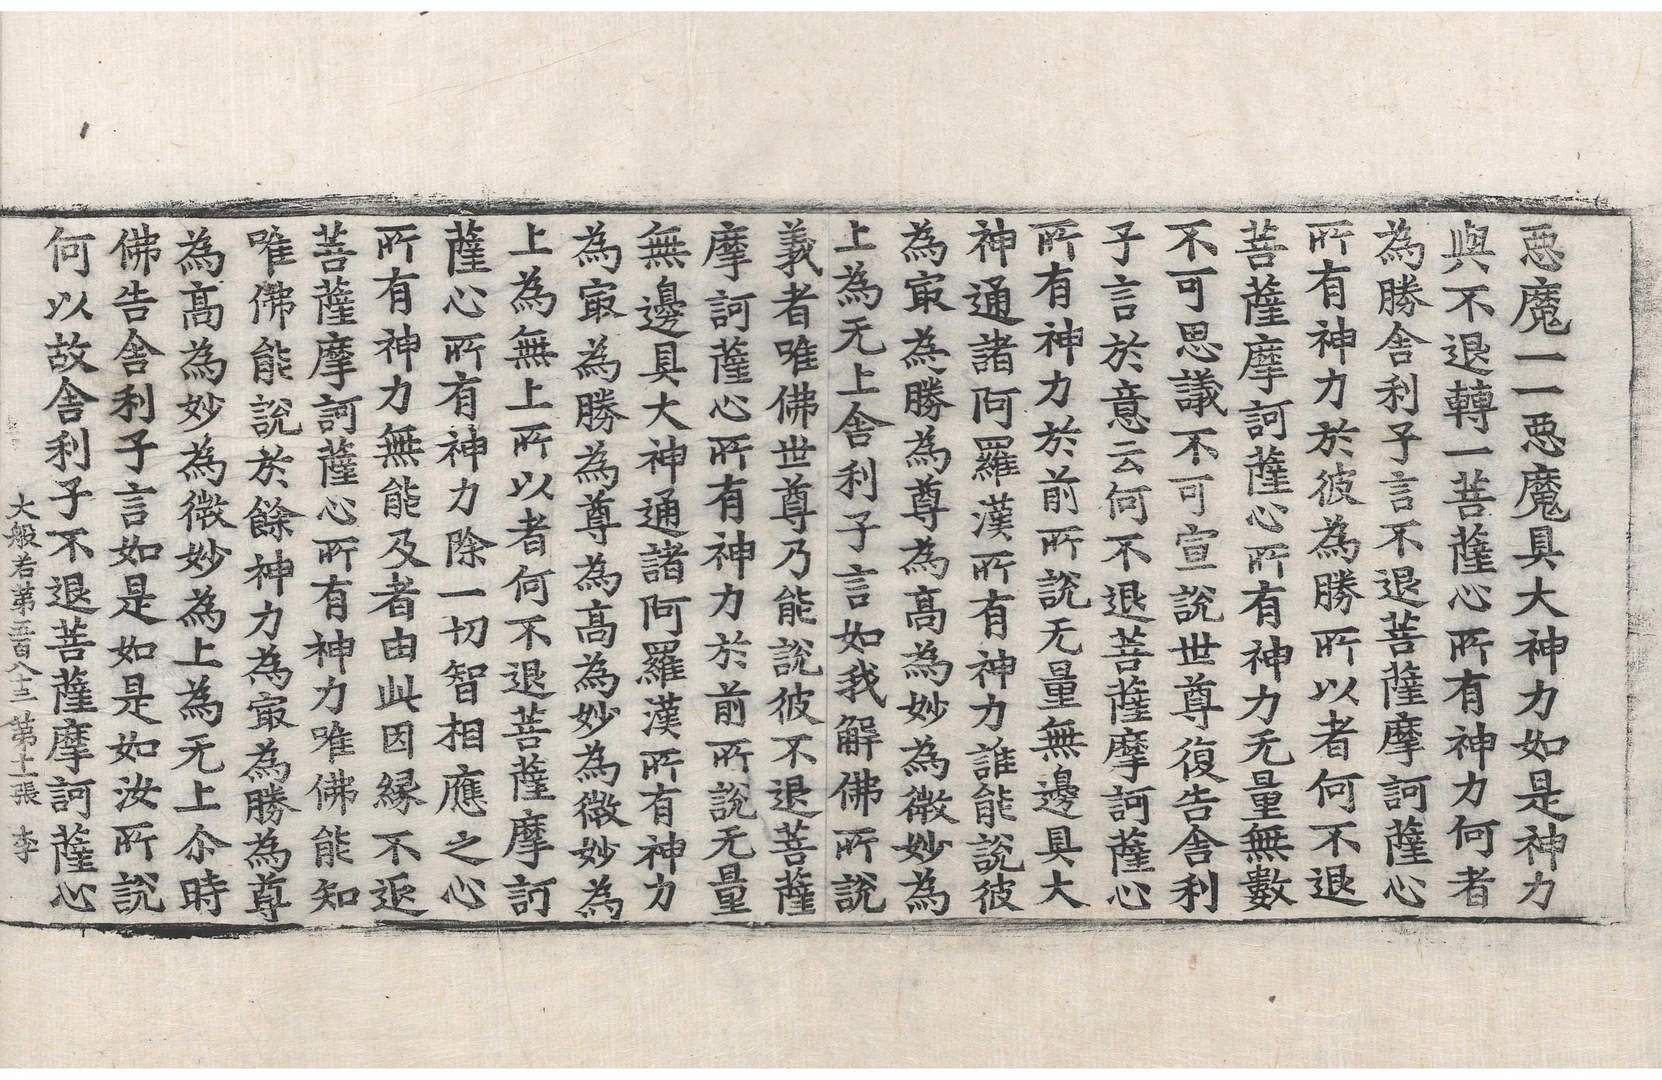 惡魔一一惡魔具大神力如是神力
與不退轉一菩薩心所有神力何者
為勝舍利子言不退菩薩摩訶薩心
所有神力於彼為勝所以者何不退
菩薩摩訶薩心所有神力无量無數
不可思議不可宣說世尊復告舍利
子言於意云何不退菩薩摩訶薩心
所有神力於前所說无量無邊具大
神通諸阿羅漢所有神力誰能說彼
為㝡為勝為尊為高為妙為微妙為
上為无上舍利子言如我解佛所說
義者唯佛世尊乃能說彼不退菩薩
摩訶薩心所有神力於前所說无量
無邊具大神通諸阿羅漢所有神力
為㝡為勝為尊為高為妙為微妙為
上為無上所以者何不退菩薩摩訶
薩心所有神力除一切智相應之心
所有神力無能及者由此因緣不退
菩薩摩訶薩心所有神力唯佛能知
唯佛能說於餘神力為㝡為勝為尊
為高為妙為微妙為上為无上尒時
佛告舍利子言如是如是如汝所說
何以故舍利子不退菩薩摩訶薩心
大般若第五百八十三 第十二張 李